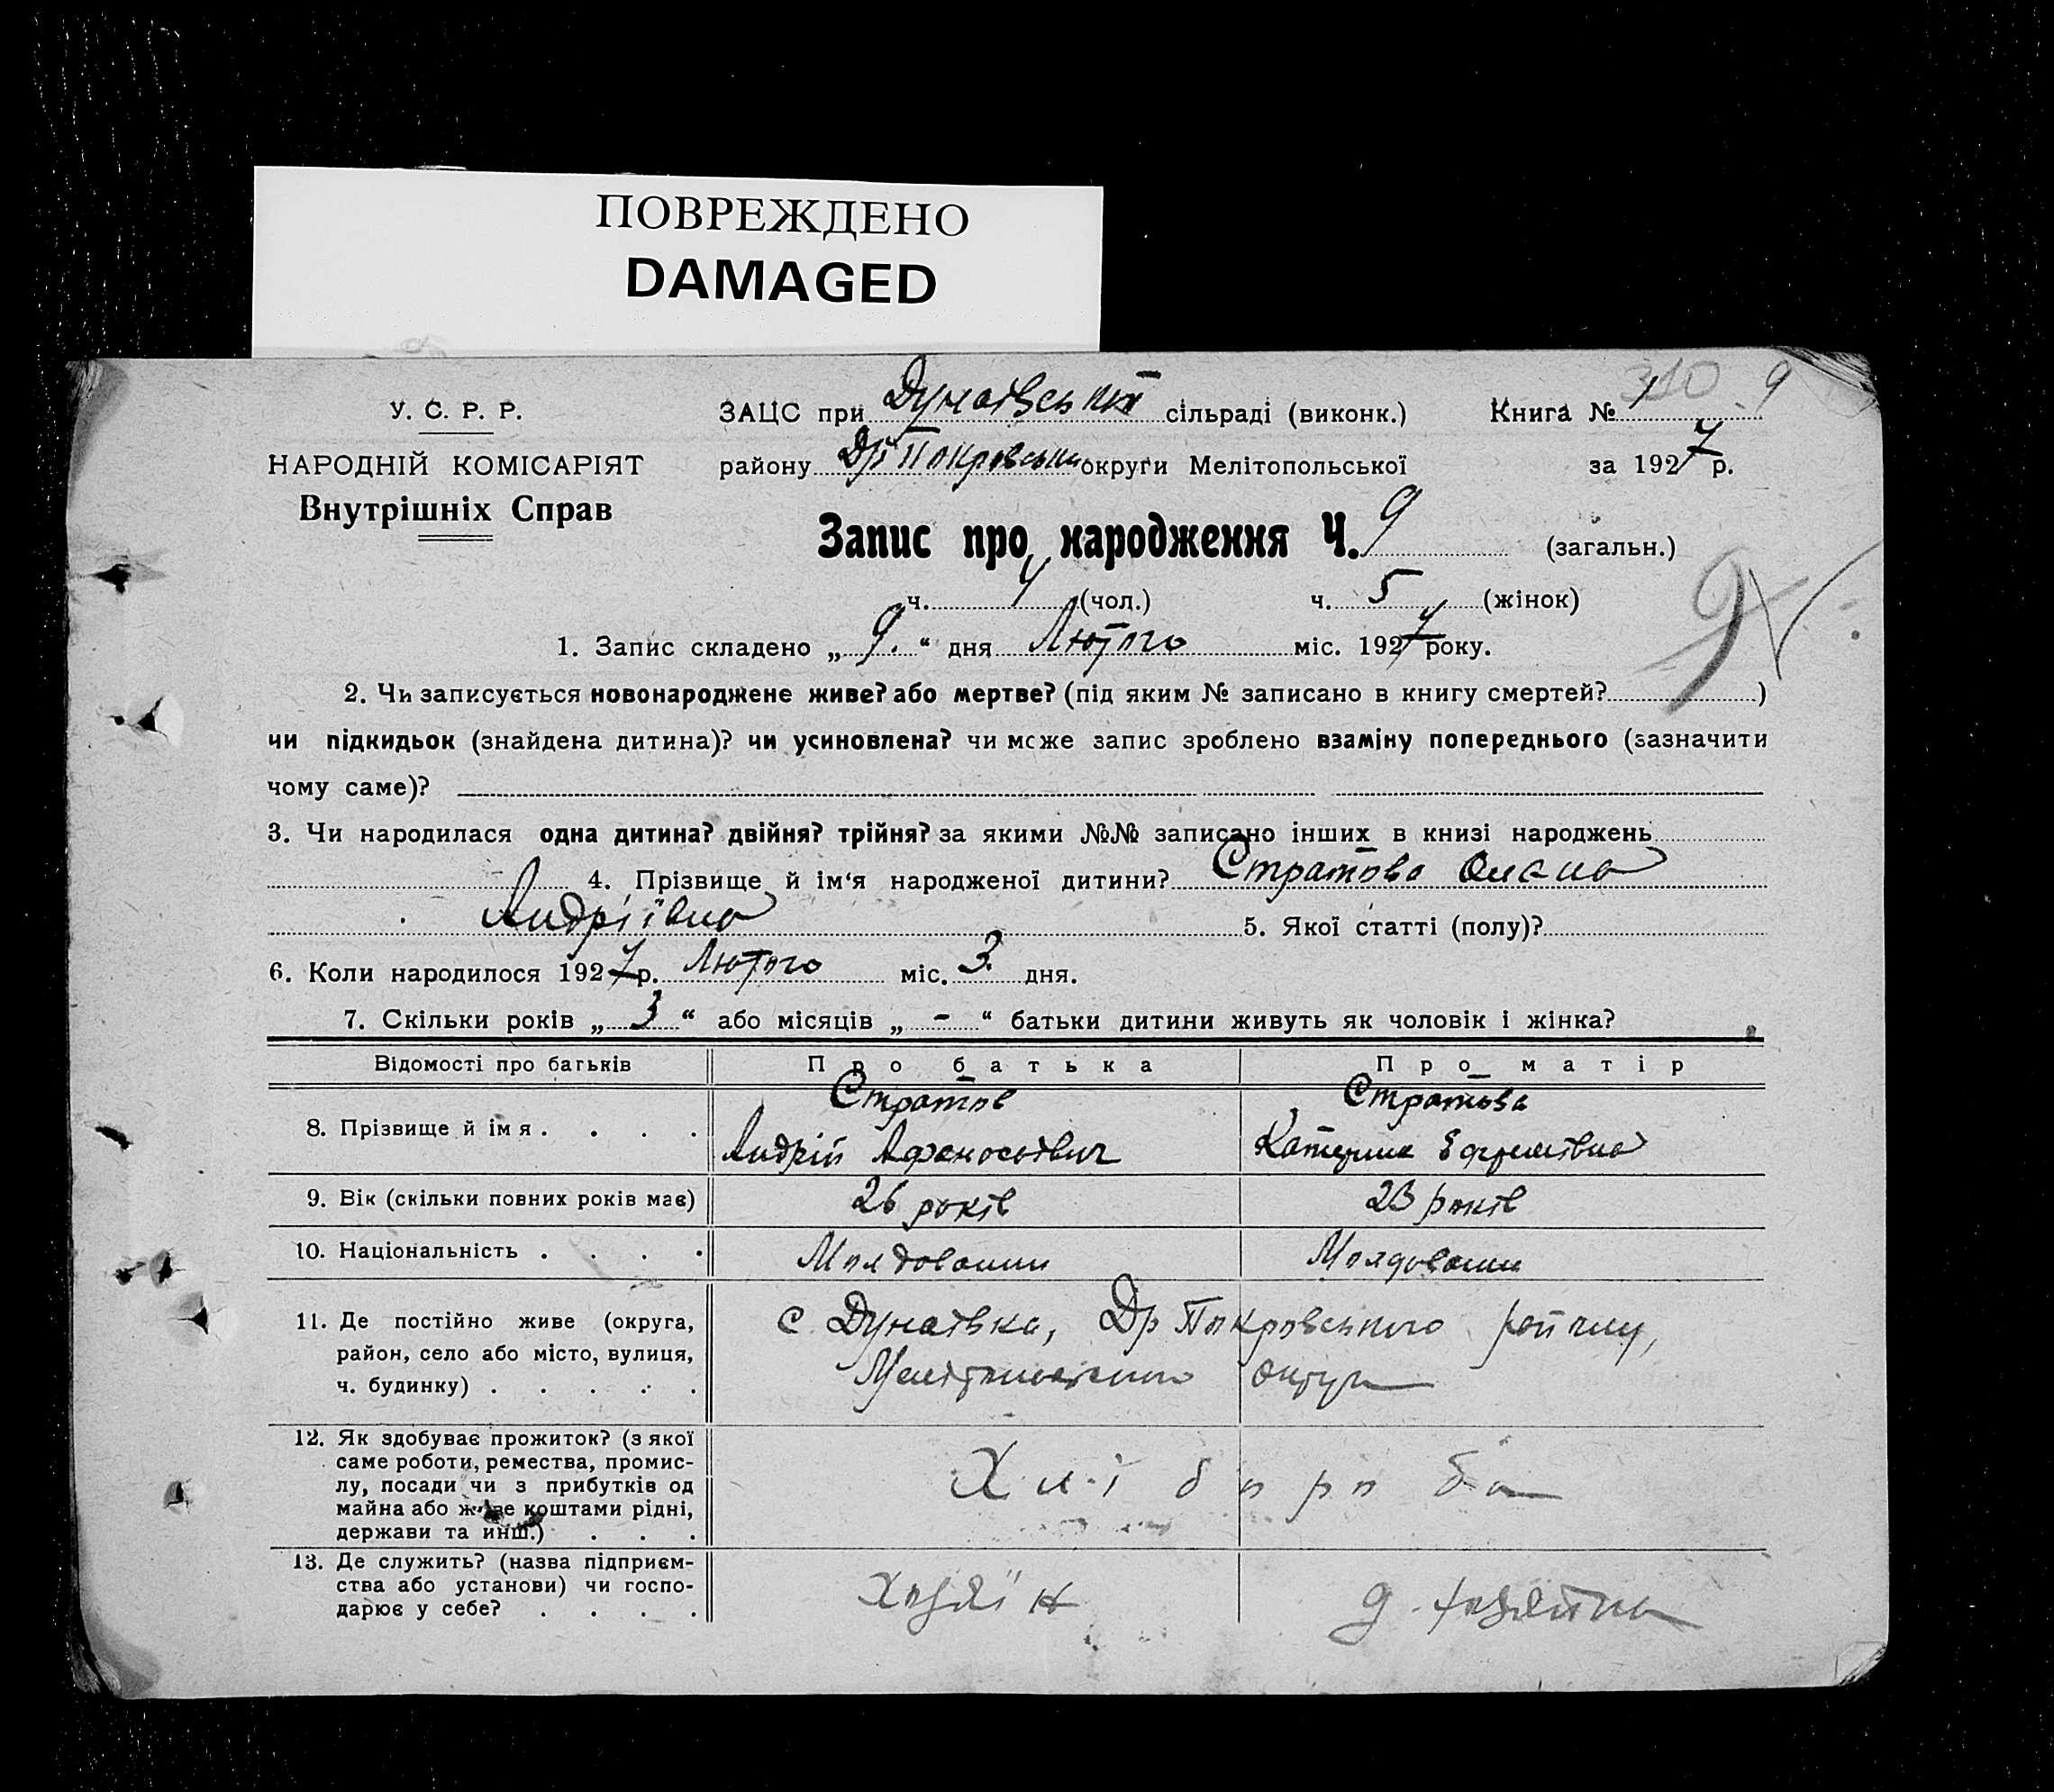 ПОВРЕЖДЕНО
DAMAGED
310 9
У. С. Р. Р.
НАРОДНІЙ КОМІСАРІЯТ
Внутрішніх Справ
ЗАЦС при Дунаївській сільраді (виконк.) Книга № 1
району Др Покровськ округи Мелітопольської за 1927 р.
Запис про народження Ч. 9 (загальн.)
ч. 4 (чол.) ч. 5 (жінок)
9
1. Запис складено „9.“ дня Лютого міс. 1927 року.
2. Чи записується новонароджене живе? або мертве? (під яким № записано в книгу смертей? )
чи підкидьок (знайдена дитина)? чи усиновлена? чи може запис зроблено взаміну попереднього (зазначити
чому саме)?
3. Чи народилася одна дитина? двійня? трійня? за якими №№ записано інших в книзі народжень
4. Прізвище й ім‘я народженої дитини? Стратова Олена
Андріївна 5. Якої статті (полу)?
6. Коли народилося 1927 р. Лютого міс. 3 дня.
7. Скільки років „3“ або місяців „-“ батьки дитини живуть як чоловік і жінка?
Відомості про батьків Про батька Про матір
8. Прізвище й імя . . . . Стратов Стратова
Андрій Афанасьевич Катерина Ефремівна
9. Вік (скільки повних років має) 26 років 23 років
10. Національність . . . . Молдовани Молдовани
11. Де постійно живе (округа,
район, село або місто, вулиця,
ч. будинку) . . . . .
с Дунаївка, Др Покровського району,
Мелітопольського округи
12. Як здобуває прожиток? (з якої
саме роботи, ремества, промис-
лу, посади чи з прибутків од
майна або живе коштами рідні,
держави та инш.) . . .
Хліборроба
13. Де служить? (назва підприєм-
ства або установи) чи госпо-
дарює у себе? . . . .
Хазяїн д. хазяйка